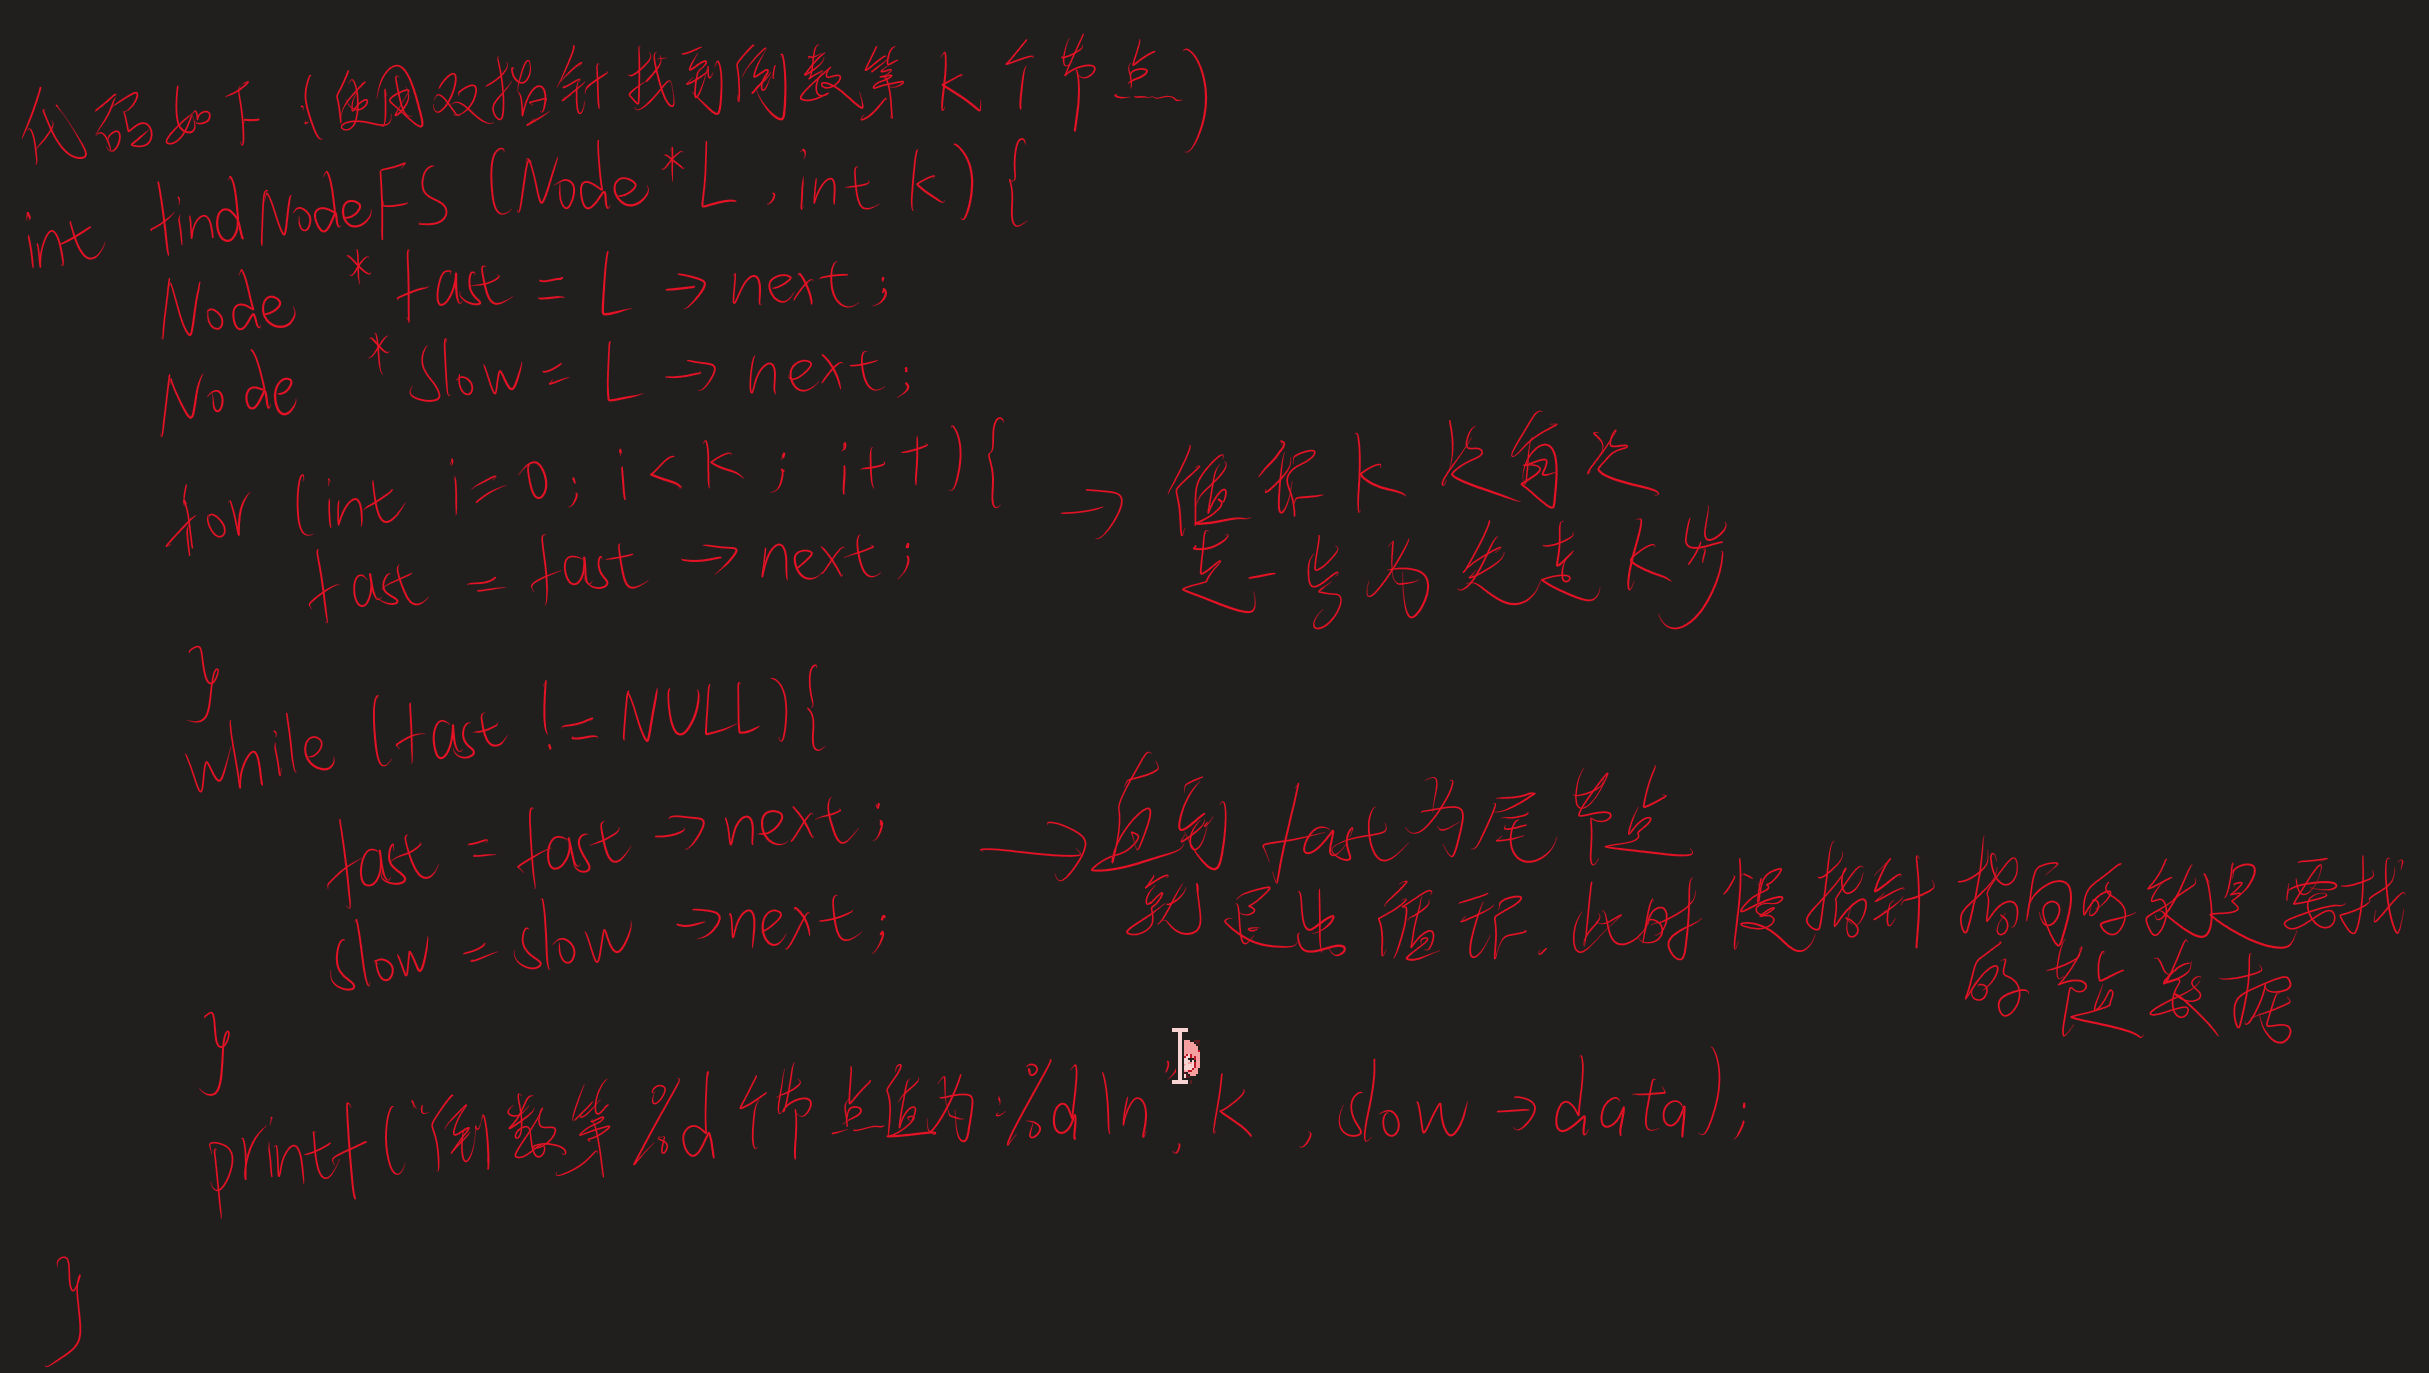 代码如下:(使用双指针找到倒数第k个节点)
int findNodeFS (Node *L, int k){
Node *fast = L→next;
Node *slow = L→next;
for (int i=0; i<k; i++){
→ 循环k次每次
fast = fast→next;
走一步为先走k步
}
while (fast != NULL){
fast = fast→next;
→ 直到 fast为尾节点
slow = slow→next;
就退出循环.此时慢指针指向的就是要找
的节点数据
}
printf("倒数第%d个节点值为:%d\n", k, slow→data);
}